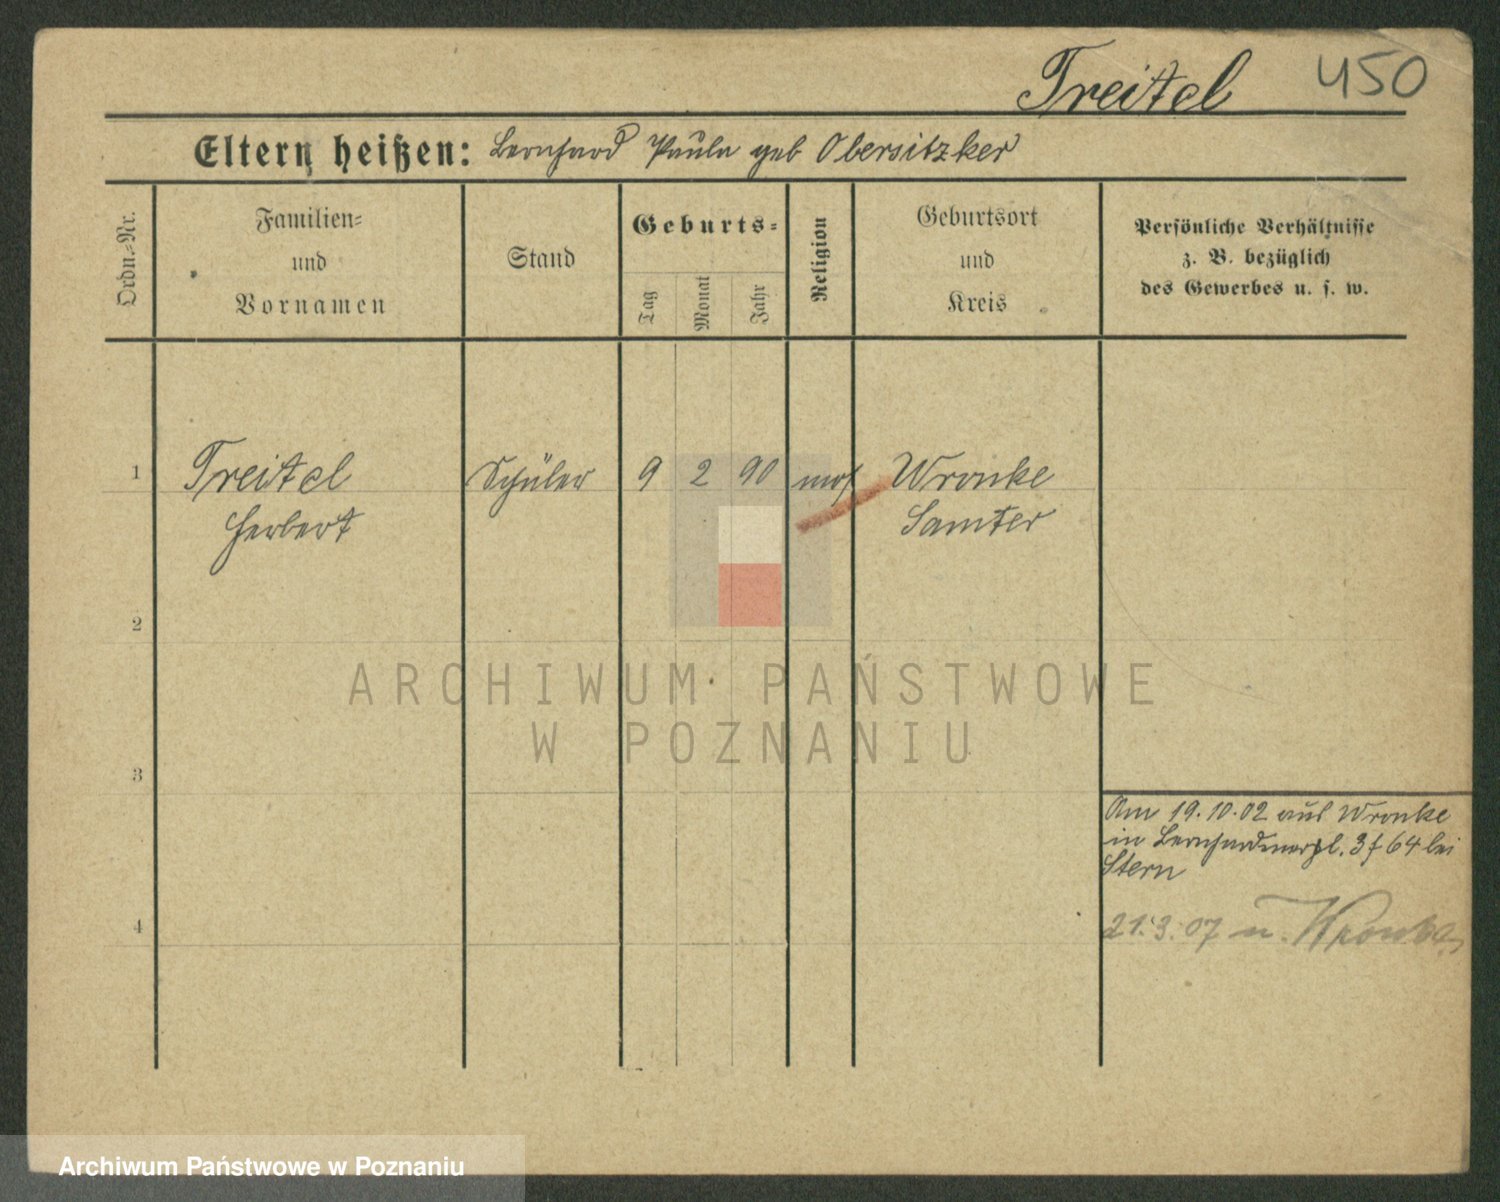 Treitel 450
Eltern heißen: Bernhard Paula geb Obersitzker
Ordn.=Nr.
Familien=
und
Vornamen
Stand
Geburts=
Tag
Monat
Jahr
Religion
Geburtsort
und
Kreis
Persönliche Verhältnisse
z. B. bezüglich
des Gewerbes u. s. w.
1 Treitel Schüler 9 2 90 mos Wronke
Herbert Samter
2
3
Am 19.10.02 aus Wronke
in Bernhardinerpl. 3 f 64 bei
Stern
4
21.3.07 n. Wronke
ARCHIWUM PAŃSTWOWE
W POZNANIU
Archiwum Państwowe w Poznaniu